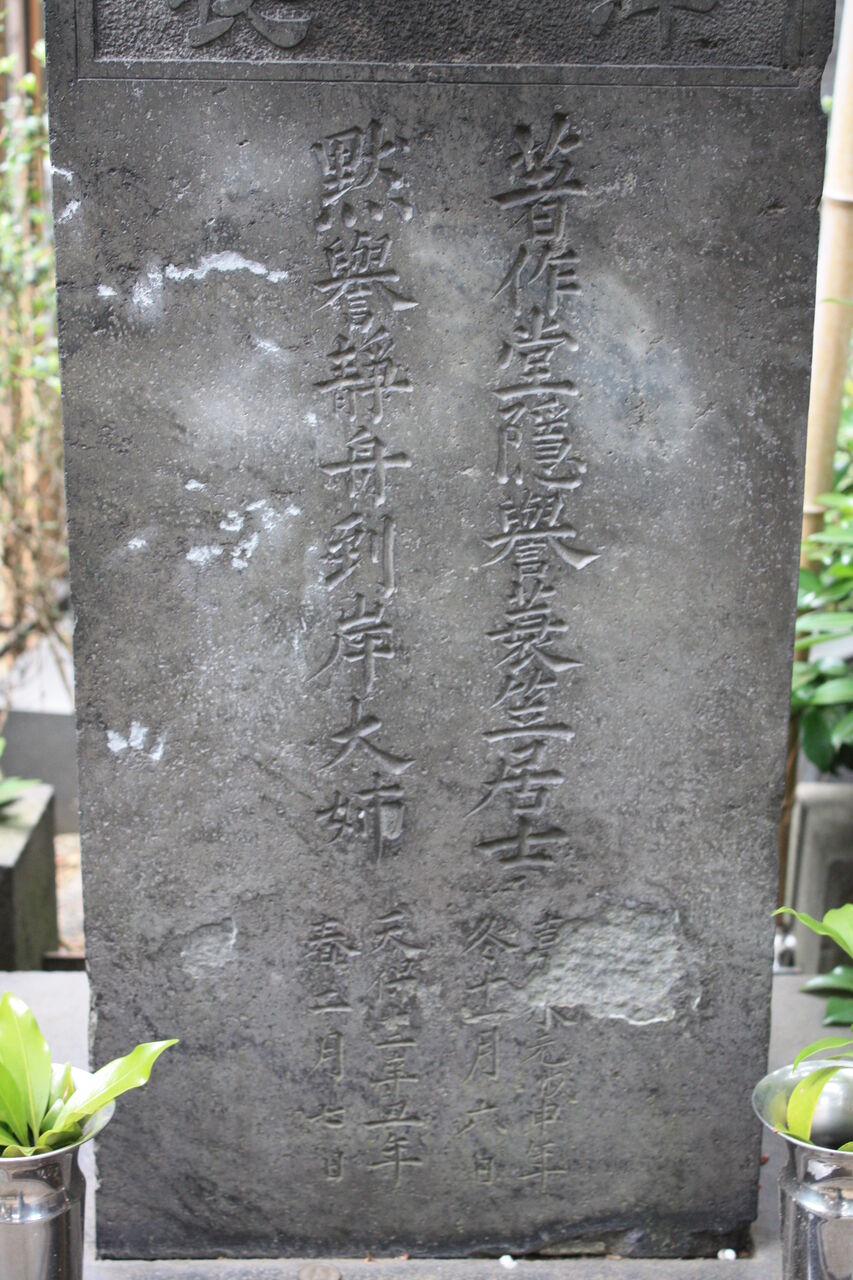 著作堂隱譽蓑笠居士
嘉永元戊申年
冬十一月六日
黙譽静舟到岸大姉
天保十二辛丑年
春二月七日